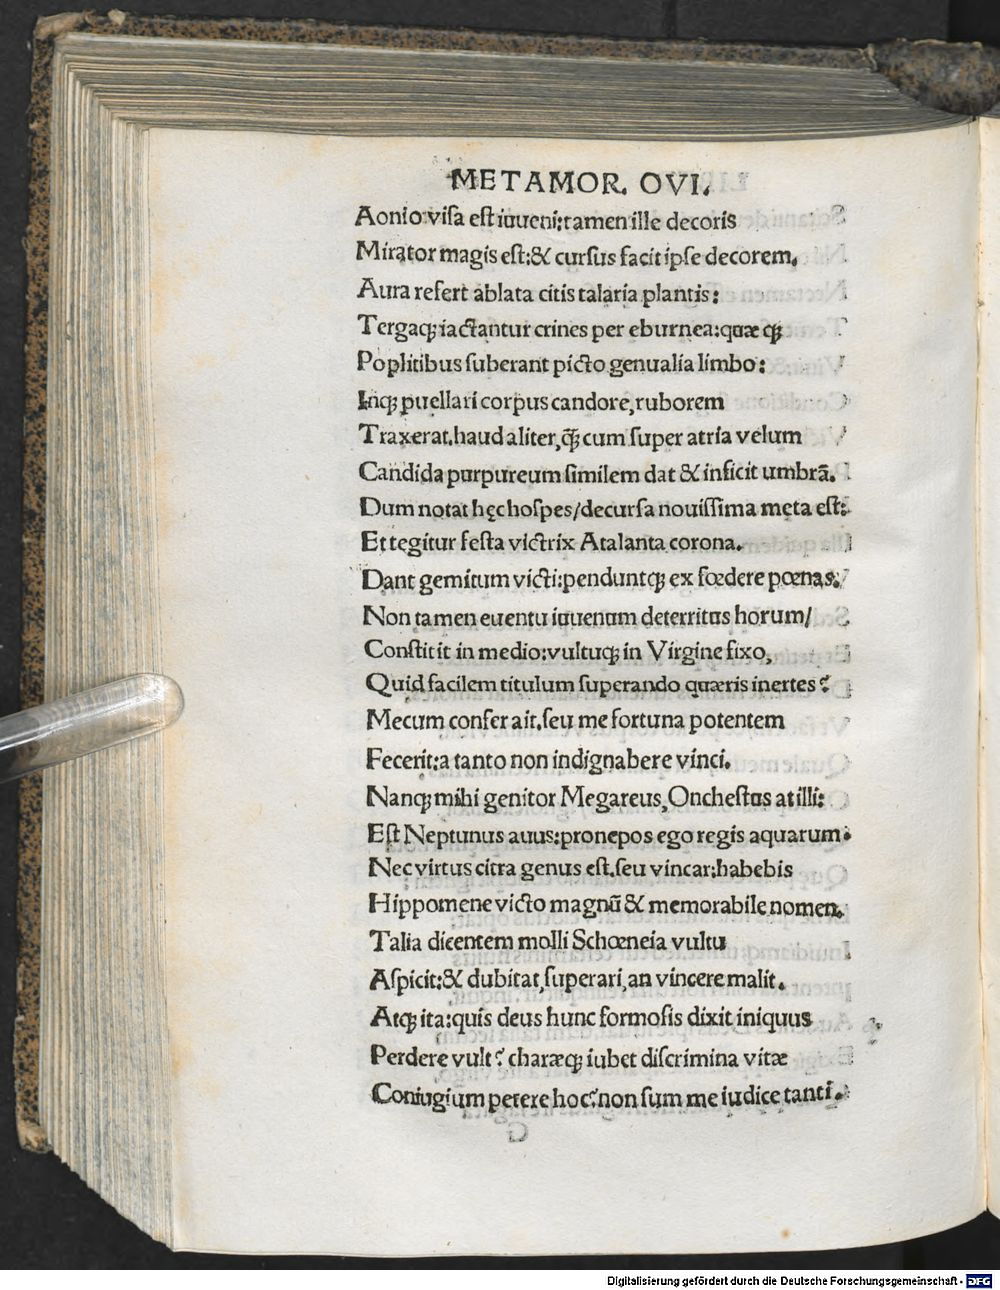 METAMOR. OVI.
Aonio visa est iuueni: tamen ille decoris
Mirator magis est: & cursus facit ipse decorem.
Aura refert ablata citis talaria plantis:
Tergaqꝫ iactantur crines per eburnea: quæ qꝫ
Poplitibus suberant picto genualia limbo:
Inqꝫ puellari corpus candore, ruborem
Traxerat. haud aliter, q̄ꝫ cum super atria velum
Candida purpureum similem dat & inficit umbrā.
Dum notat hęc hospes/ decursa nouissima meta est:
Et tegitur festa victrix Atalanta corona.
Dant gemitum victi: penduntqꝫ ex fœdere pœnas.
Non tamen euentu iuuenum deterritus horum/
Constitit in medio: vultuqꝫ in Virgine fixo,
Quid facilem titulum superando quæris inertes?
Mecum confer ait. seu me fortuna potentem
Fecerit: a tanto non indignabere vinci.
Nanqꝫ mihi genitor Megareus, Onchestus at illi:
Est Neptunus auus: pronepos ego regis aquarum.
Nec virtus citra genus est. seu vincar: habebis
Hippomene victo magnū & memorabile nomen.
Talia dicentem molli Schœneia vultu
Aspicit: & dubitat, superari, an vincere malit.
Atqꝫ ita: quis deus hunc formosis dixit iniquus
Perdere vult? charæqꝫ iubet discrimina vitæ
Coniugium petere hoc? non sum me iudice tanti.
Digitalisierung gefördert durch die Deutsche Forschungsgemeinschaft - DFG